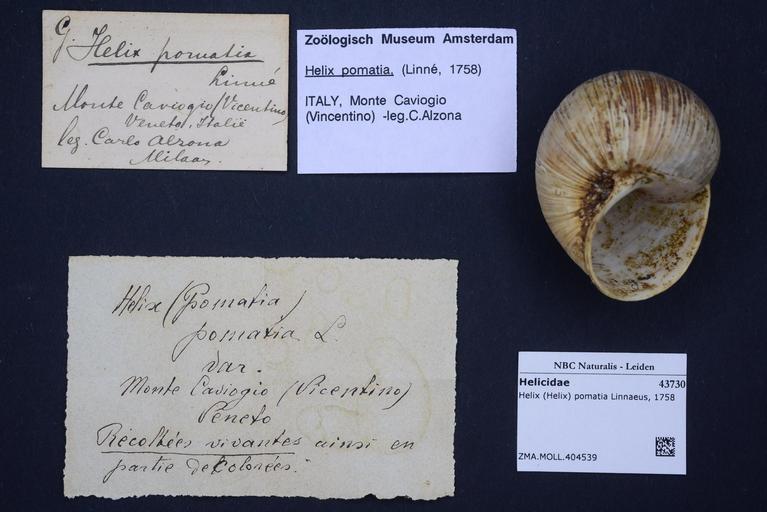 G. Helix pomatia
Linné
Monte Caviogio (Vicentino)
Veneto, Italië
leg. Carlo Alzona
Milaan.
Zoölogisch Museum Amsterdam
Helix pomatia, (Linné, 1758)
ITALY, Monte Caviogio
(Vincentino) -leg.C.Alzona
Helix (Pomatia)
pomatia L.
var.
Monte Caviogio (Vicentino)
Veneto
Récoltées vivantes ainsi en
partie décolorées.
NBC Naturalis - Leiden
Helicidae 43730
Helix (Helix) pomatia Linnaeus, 1758
ZMA.MOLL.404539